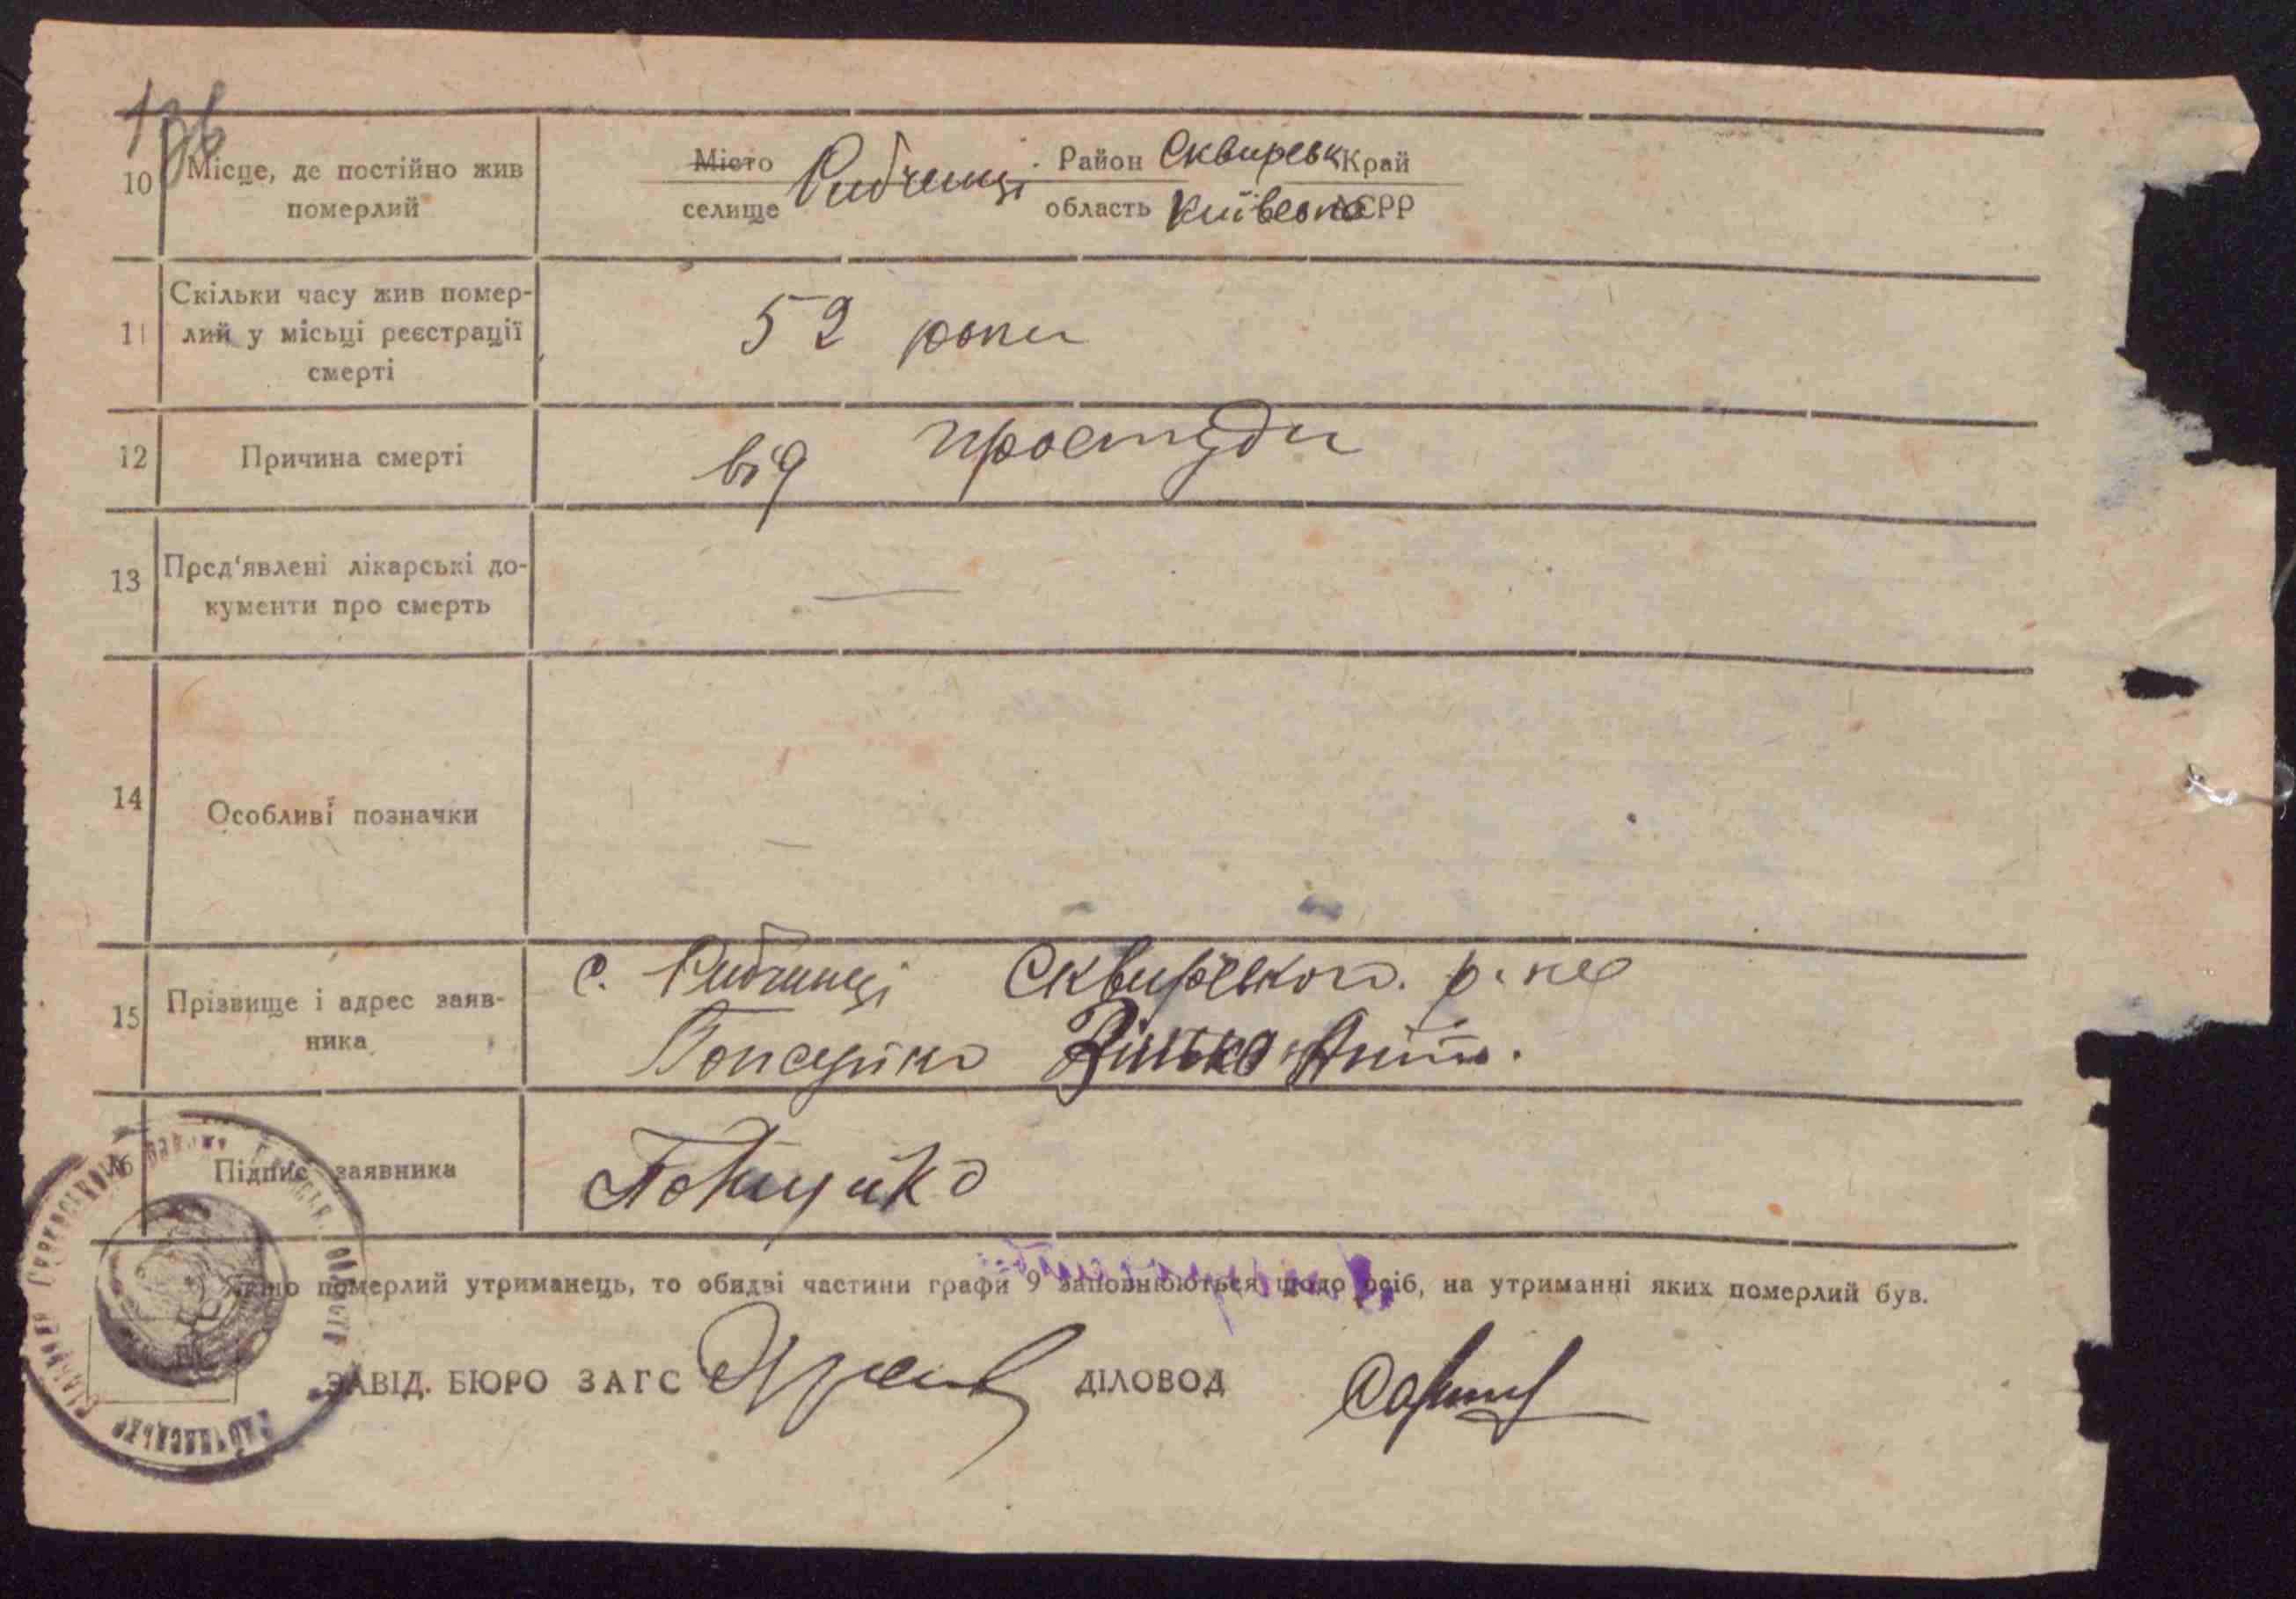 10 Місце, де постійно жив померлий
Місто селище Рибчинці Район Сквирськ Край
область Київська АСРР
11 Скільки часу жив помер-
лий у місьці реєстрації
смерті
52 роки
12 Причина смерті
від простуди
13 Пред'явлені лікарські до-
кументи про смерть
—
14 Особливі позначки
15 Прізвище і адрес заяв-
ника
с. Рибчинці Сквирського р-на
16 Підпис заявника
померлий утриманець, то обидві частини графи 9 заповнюються щодо осіб, на утриманні яких померлий був.
ЗАВІД. БЮРО ЗАГС ДІЛОВОД